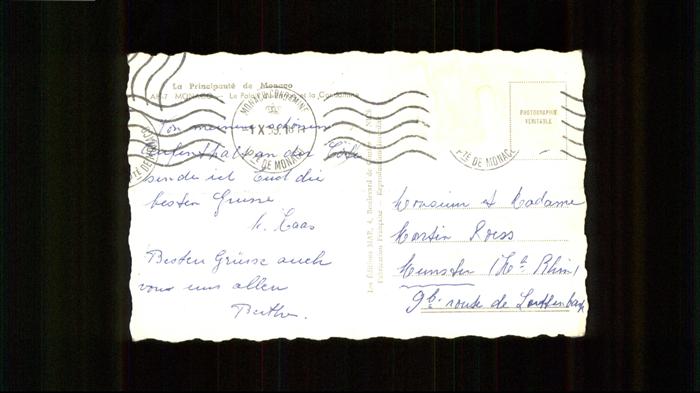 La Principauté de Monaco
MONACO — Le Palais et la Condamine
MONACO-CONDAMINE
PTÉ DE MONACO
PTÉ DE MONACO
PHOTOGRAPHIE
VÉRITABLE
Von meinem schönen
Aufenthalt an der Côte
sende ich Euch die
besten Grüsse
H. Haas
Besten Grüsse auch
von uns allen
Berthe.
Les Editions MAR, 4, Boulevard de
Fabrication Française — Reproduction
Monsieur et Madame
Martin Roess
Munster (Ht Rhin)
9b. route de